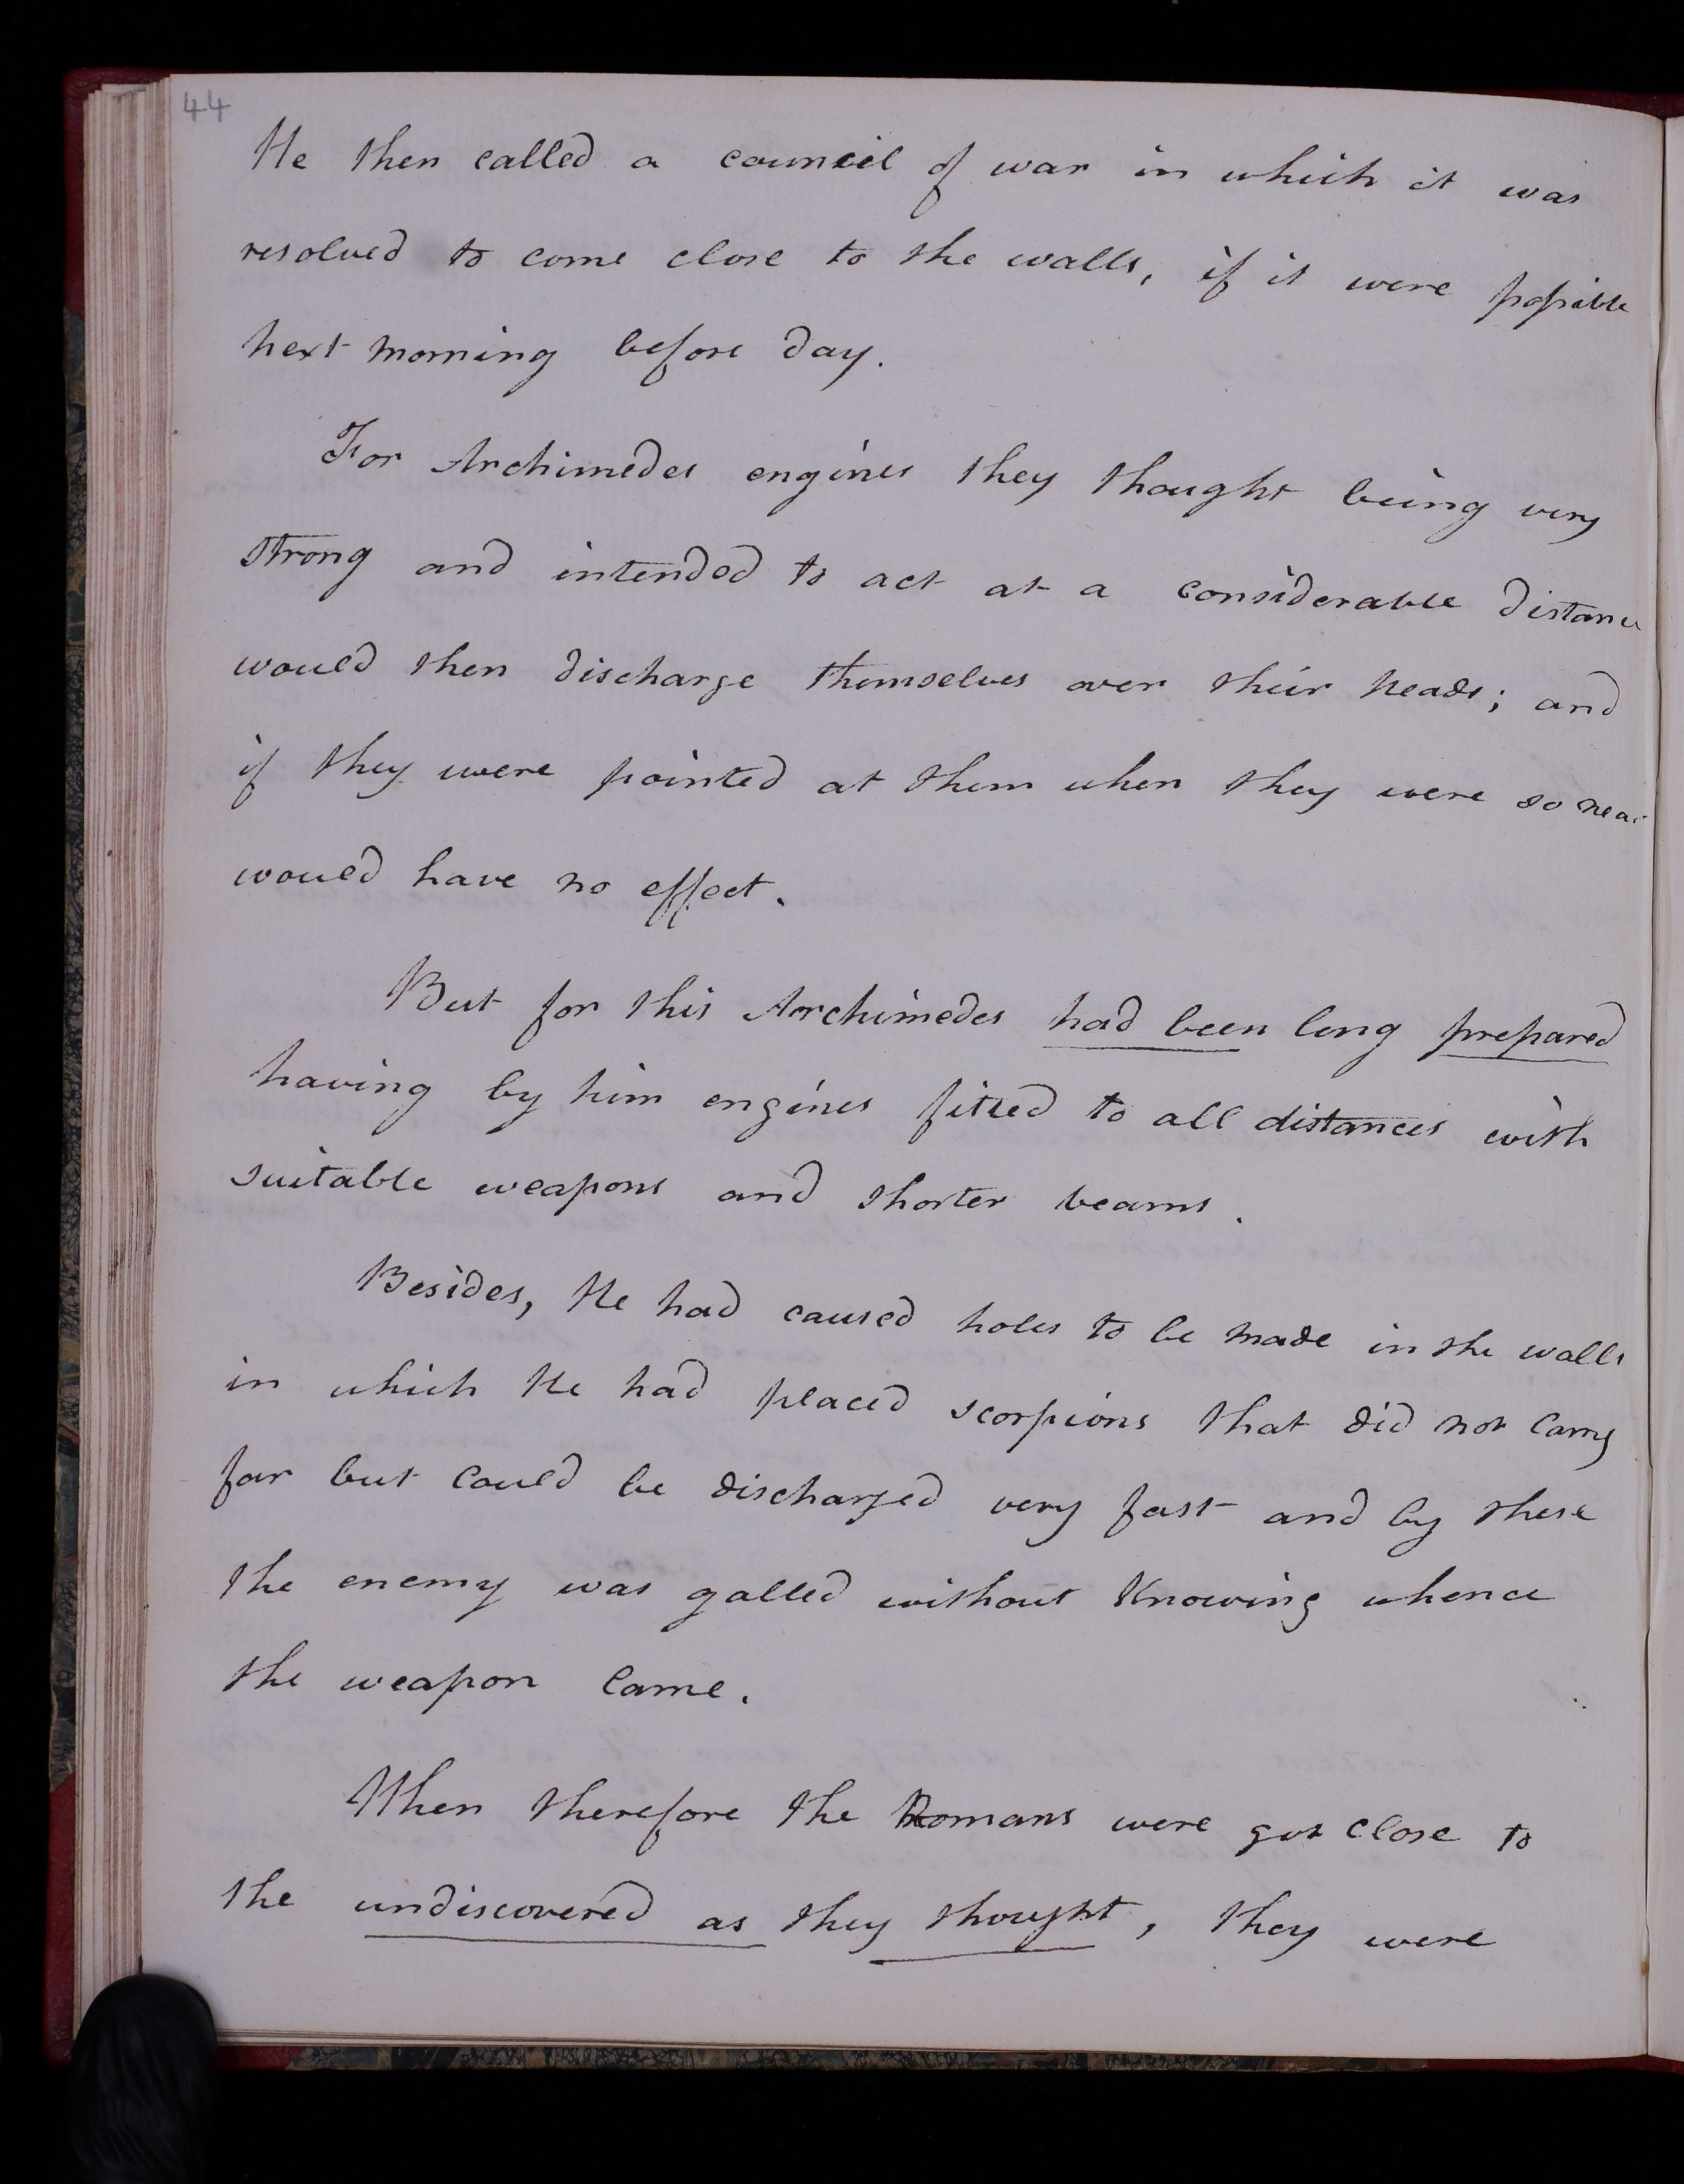 44
He then called a council of war in which it was
resolved to come close to the walls, if it were possible
next morning before day.
For Archimedes engines they thought being very
strong and intended to act at a considerable distance
would then discharge themselves over their heads; and
if they were pointed at them when they were so near
would have no effect.
But for this Archimedes had been long prepared
having by him engines fitted to all distances with
suitable weapons and shorter beams.
Besides, He had caused holes to be made in the walls
in which He had placed scorpions that did not carry
far but could be discharged very fast and by these
the enemy was galled without Knowing whence
the weapon came.
When therefore the Romans were got close to
the undiscovered as they thought, they were